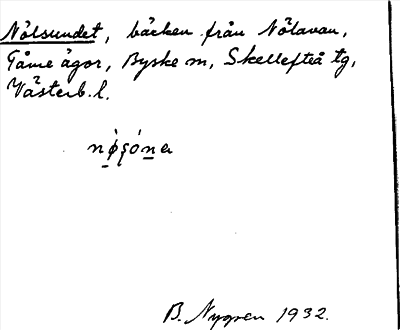 Nölsundet, bäcken från Nölavan,
Tåme ägor, Byske sn, Skellefteå tg,
Västerb. l.
B. Nygren 1932.